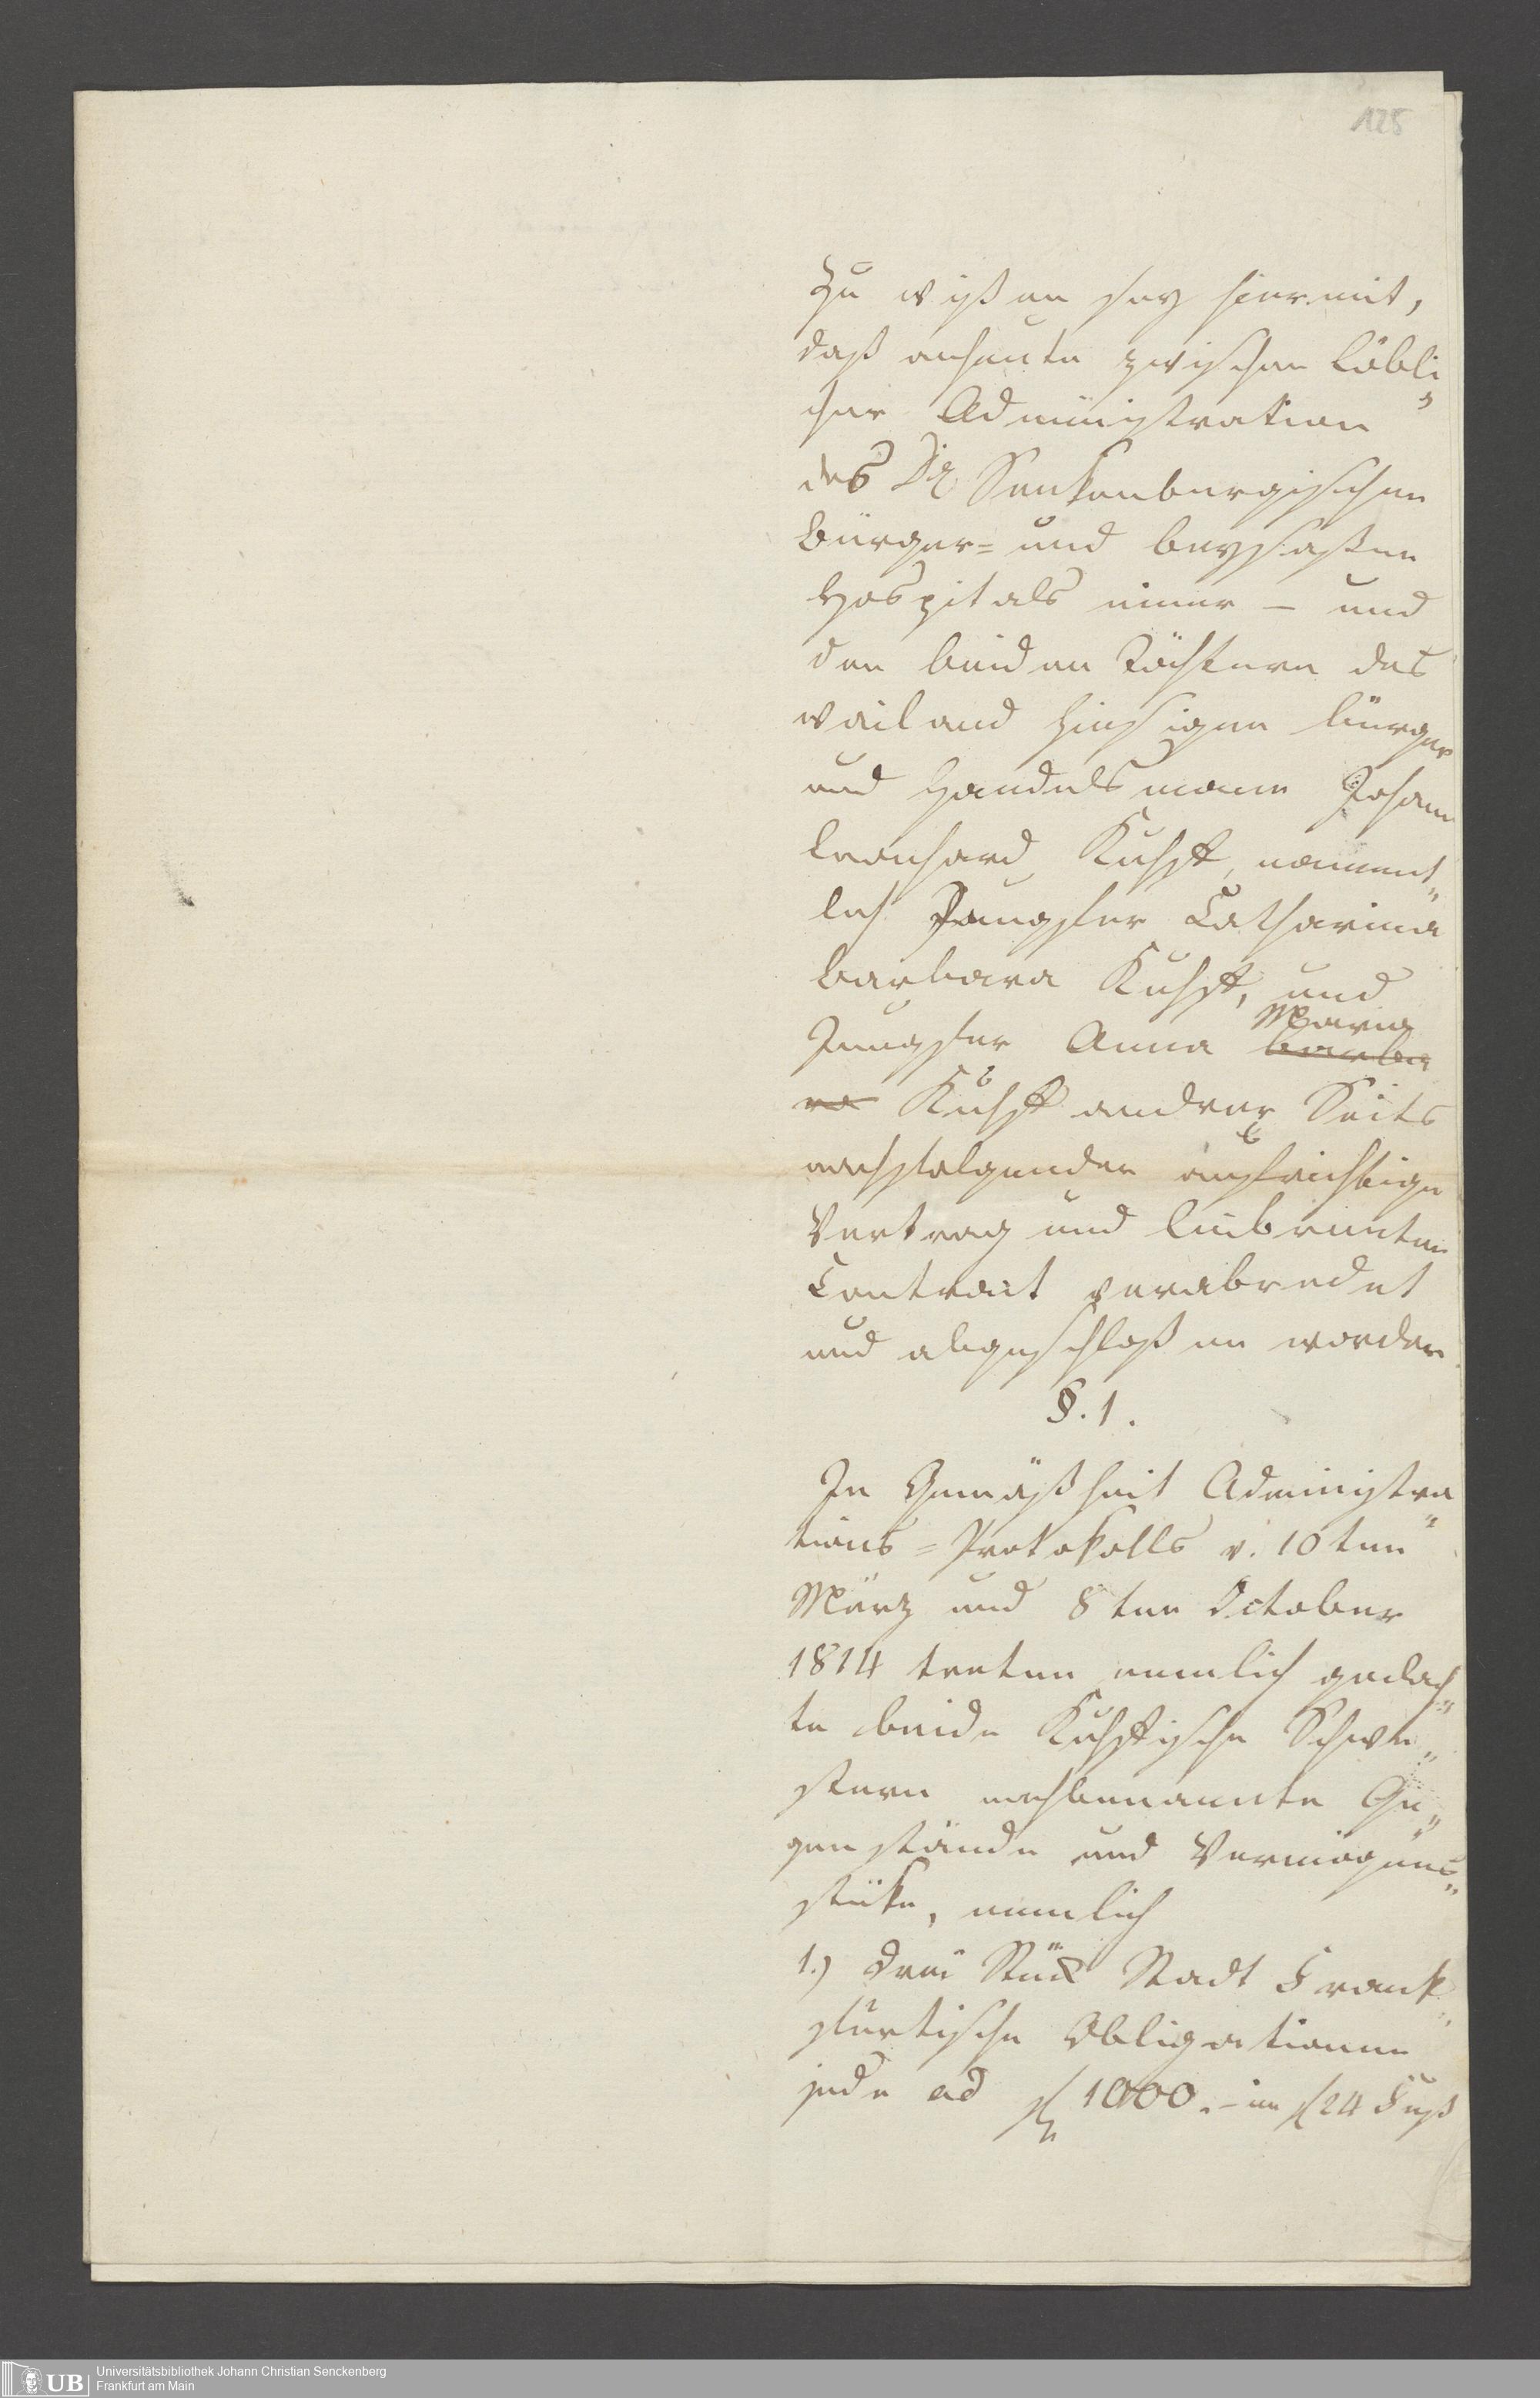 125
Zu wißen sey hiermit,
daß anheute zwischen Löbli„
cher Administration
des Dr Senkenbergischen
Bürger= und beysaßen
Hospitals einer – und
den beiden Töchtern des
weiland hiesigen bürger
und Handelsmann Johann
Leonhard Kuhst, nament„
lich Jungfer Catharina
Barbara Kuhst, und
Jungfer Anna Maria Barba
ra Kuhst andrer Seits
nachfolgender aufrichtige
Vertrag und Leibrenten
Contract verabredet
und abgeschloßen worden
§. 1.
In Gemäßheit Administra„
tions=Protokolls v. 10ten
März und 8ten October
1814 treten nemlich gedach„
te beide Kuhstische Schwe„
stern nachbenannte Ge„
genstände und Vermögens„
stüke, nemlich
1.) Drei Stück Stadt Frank„
furtische Obligationen
jede ad f 1000.– im f 24 Fuß
UB
Universitätsbibliothek Johann Christian Senckenberg
Frankfurt am Main